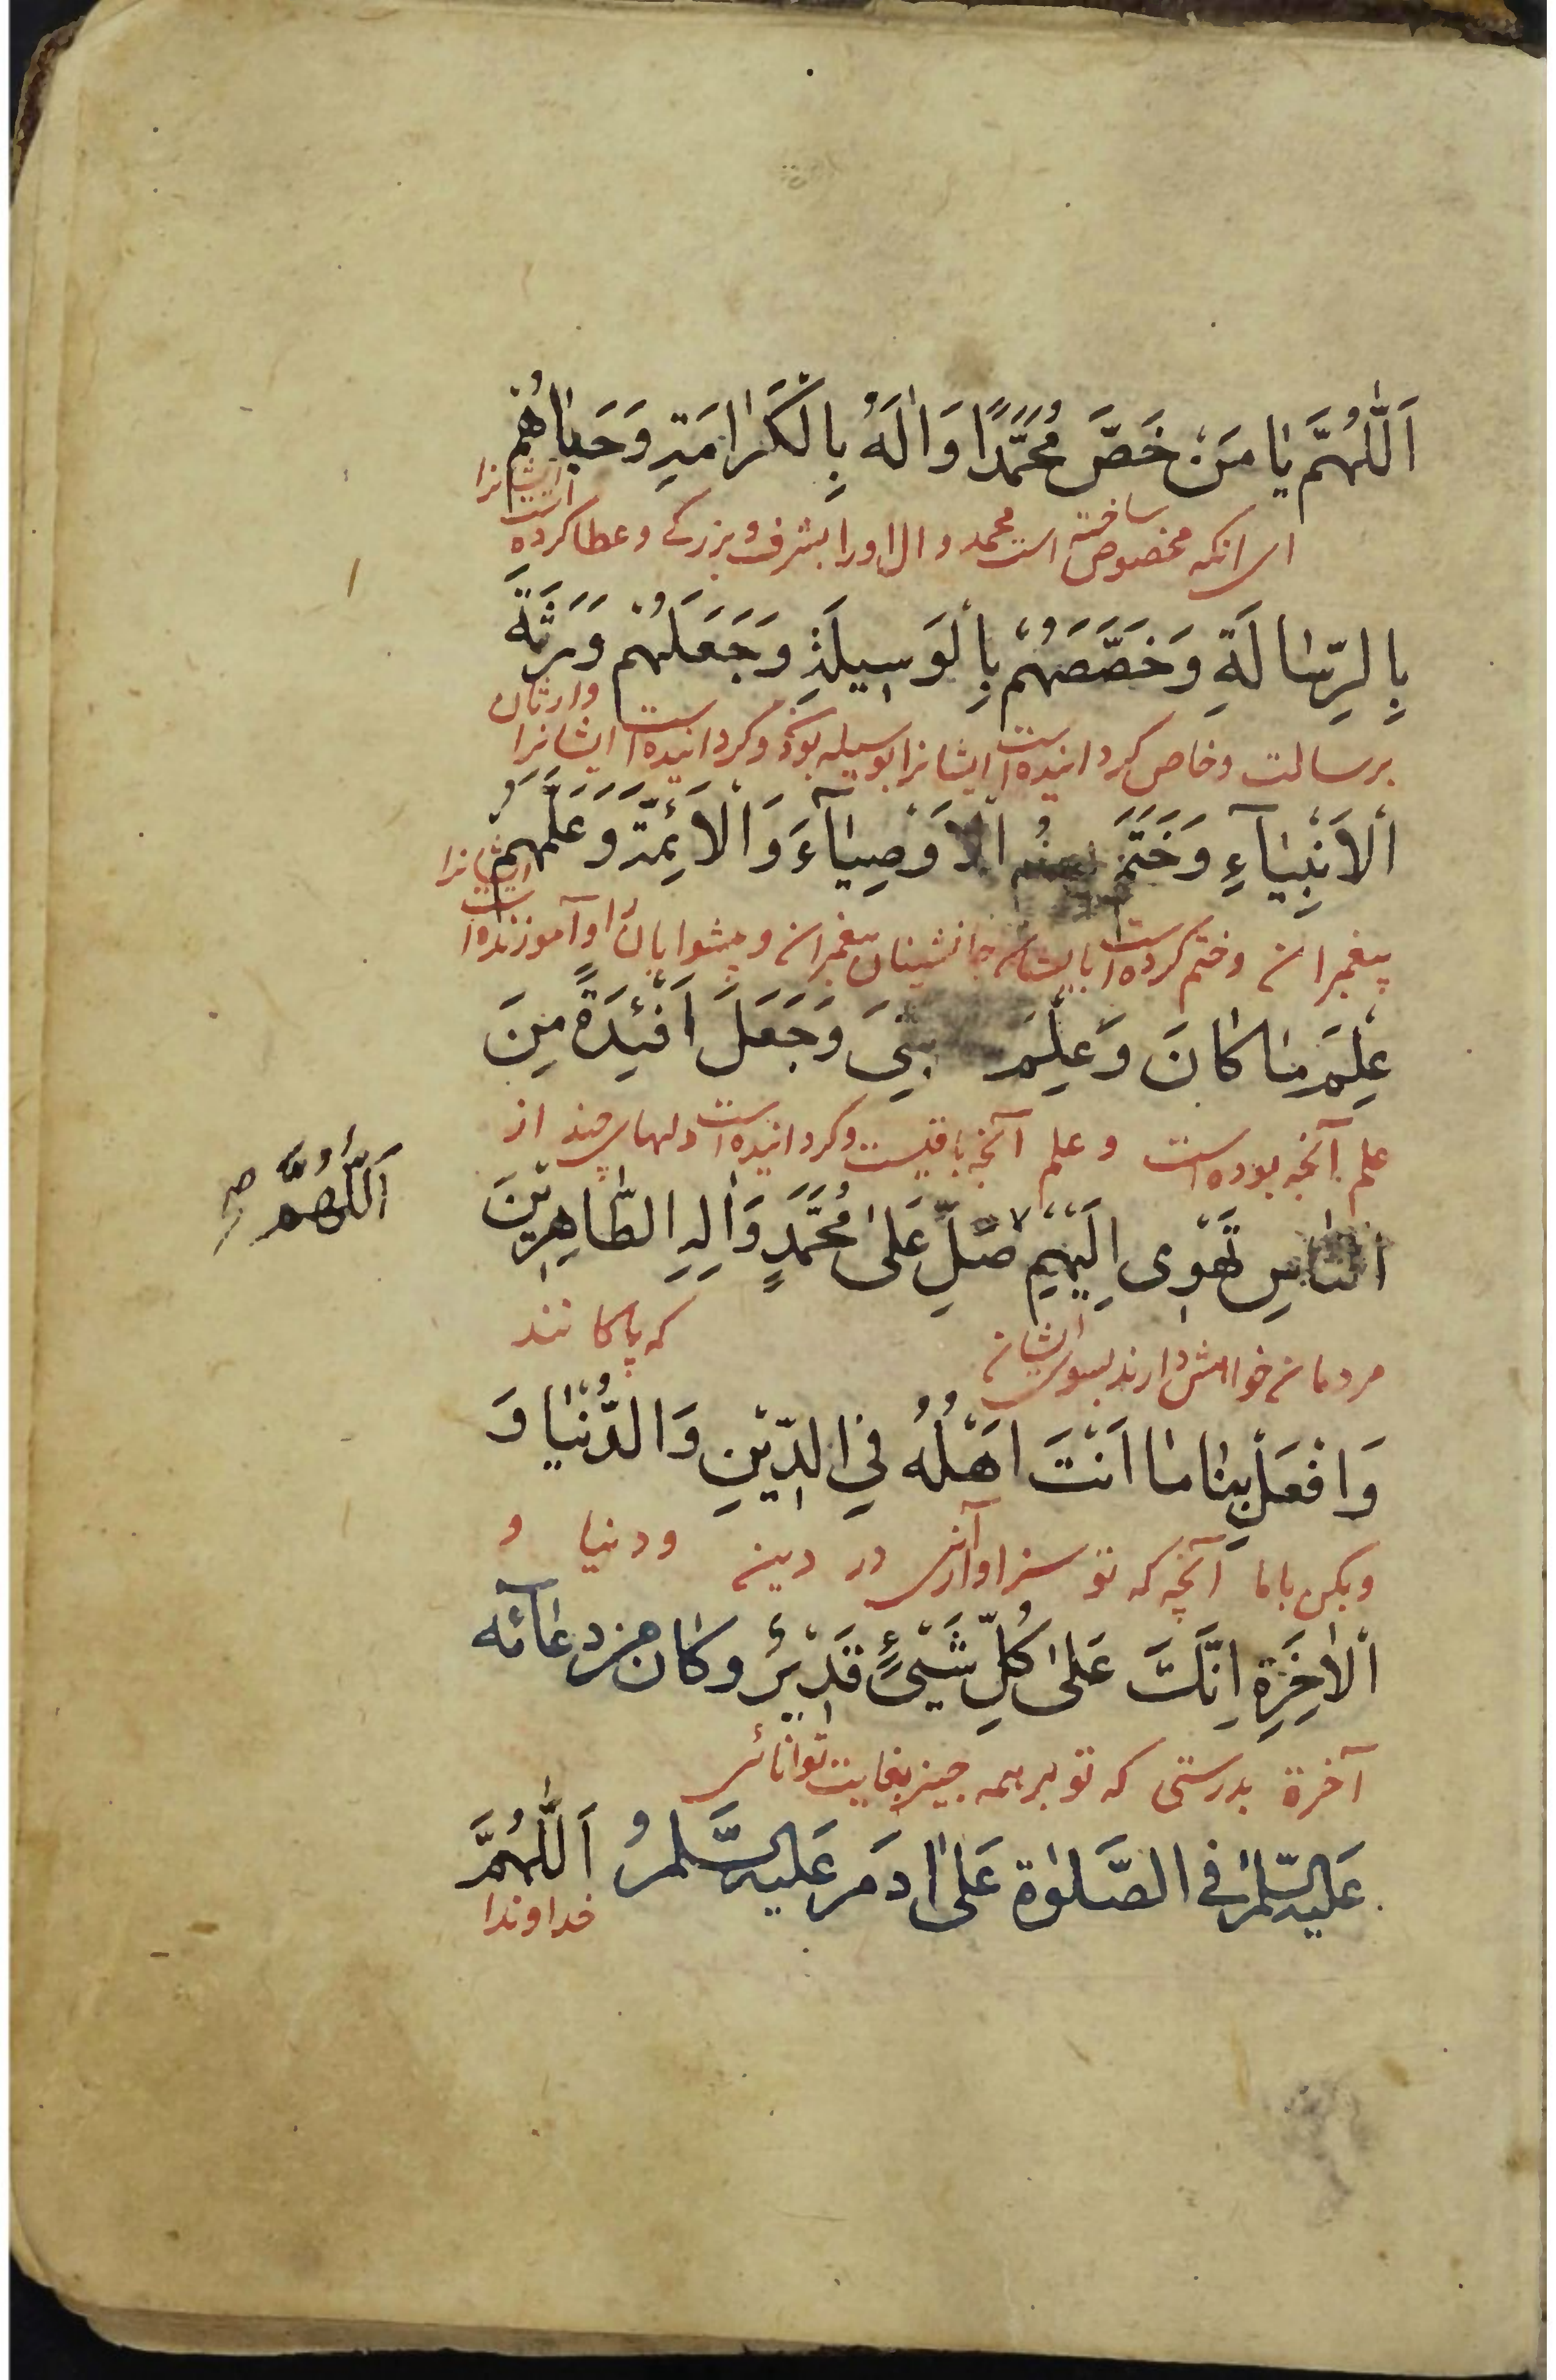 اَللّٰهُمَّ يٰا مَنْ خَصَّ مُحَمَّدًا وَاٰلَهُ بِالْكَرٰامَةِ وَحَبٰاهُمْ
ای انکه مخصوص ساخته است محمد و ال او را بشرف و بزرکے و عطا کرده است ایشانرا
بِالرِّسٰالَةِ وَخَصَّصَهُمْ بِالْوَسِيلَةِ وَجَعَلَهُمْ وَرَثَةَ
برسالت و خاص کردانیده است ایشانرا بوسیله بودن و کردانیده است ایشانرا وارثان
اَلْاَنْبِيٰآءِ وَخَتَمَ بِهِمُ اَلْاَوْصِيٰآءَ وَالْاَئِمَّةَ وَعَلَّمَهُمْ
پیغمبران و ختم کرده است بایشان جانشینان پیغمبران و پیشوایان را و آموزنده است ایشانرا
عِلْمَ مٰا كٰانَ وَعِلْمَ بَقِيَ وَجَعَلَ اَفْئِدَةً مِنَ
علم آنچه بوده است و علم آنچه باقیست و کردانیده است دلهای چند از
النّٰاسِ تَهْوٖى اِلَيْهِمْ صَلِّ عَلىٰ مُحَمَّدٍ وَاٰلِهِ الطّٰاهِرِيْنَ
اَللّٰهُمَّ صح
مردمان خواهش دارند بسوی ایشان که پاکانند
وَافْعَلْ بِنٰا مٰا اَنْتَ اَهْلُهُ فِي الدِّيْنِ وَالدُّنْيٰا وَ
و بکن با ما آنچه که تو سزاوار آنی در دین و دنیا و
اَلْاٰخِرَةِ اِنَّكَ عَلىٰ كُلِّ شَيْئٍ قَدِيْرٌ وكان من دعآئه
آخرة بدرستی که تو بر همه چیز بغایت توانائی
عَليه السَّلٰمُ في الصَّلوٰة عَلىٰ اٰدَمَ عَليه السَّلٰمُ اَللّٰهُمَّ
خداوندا